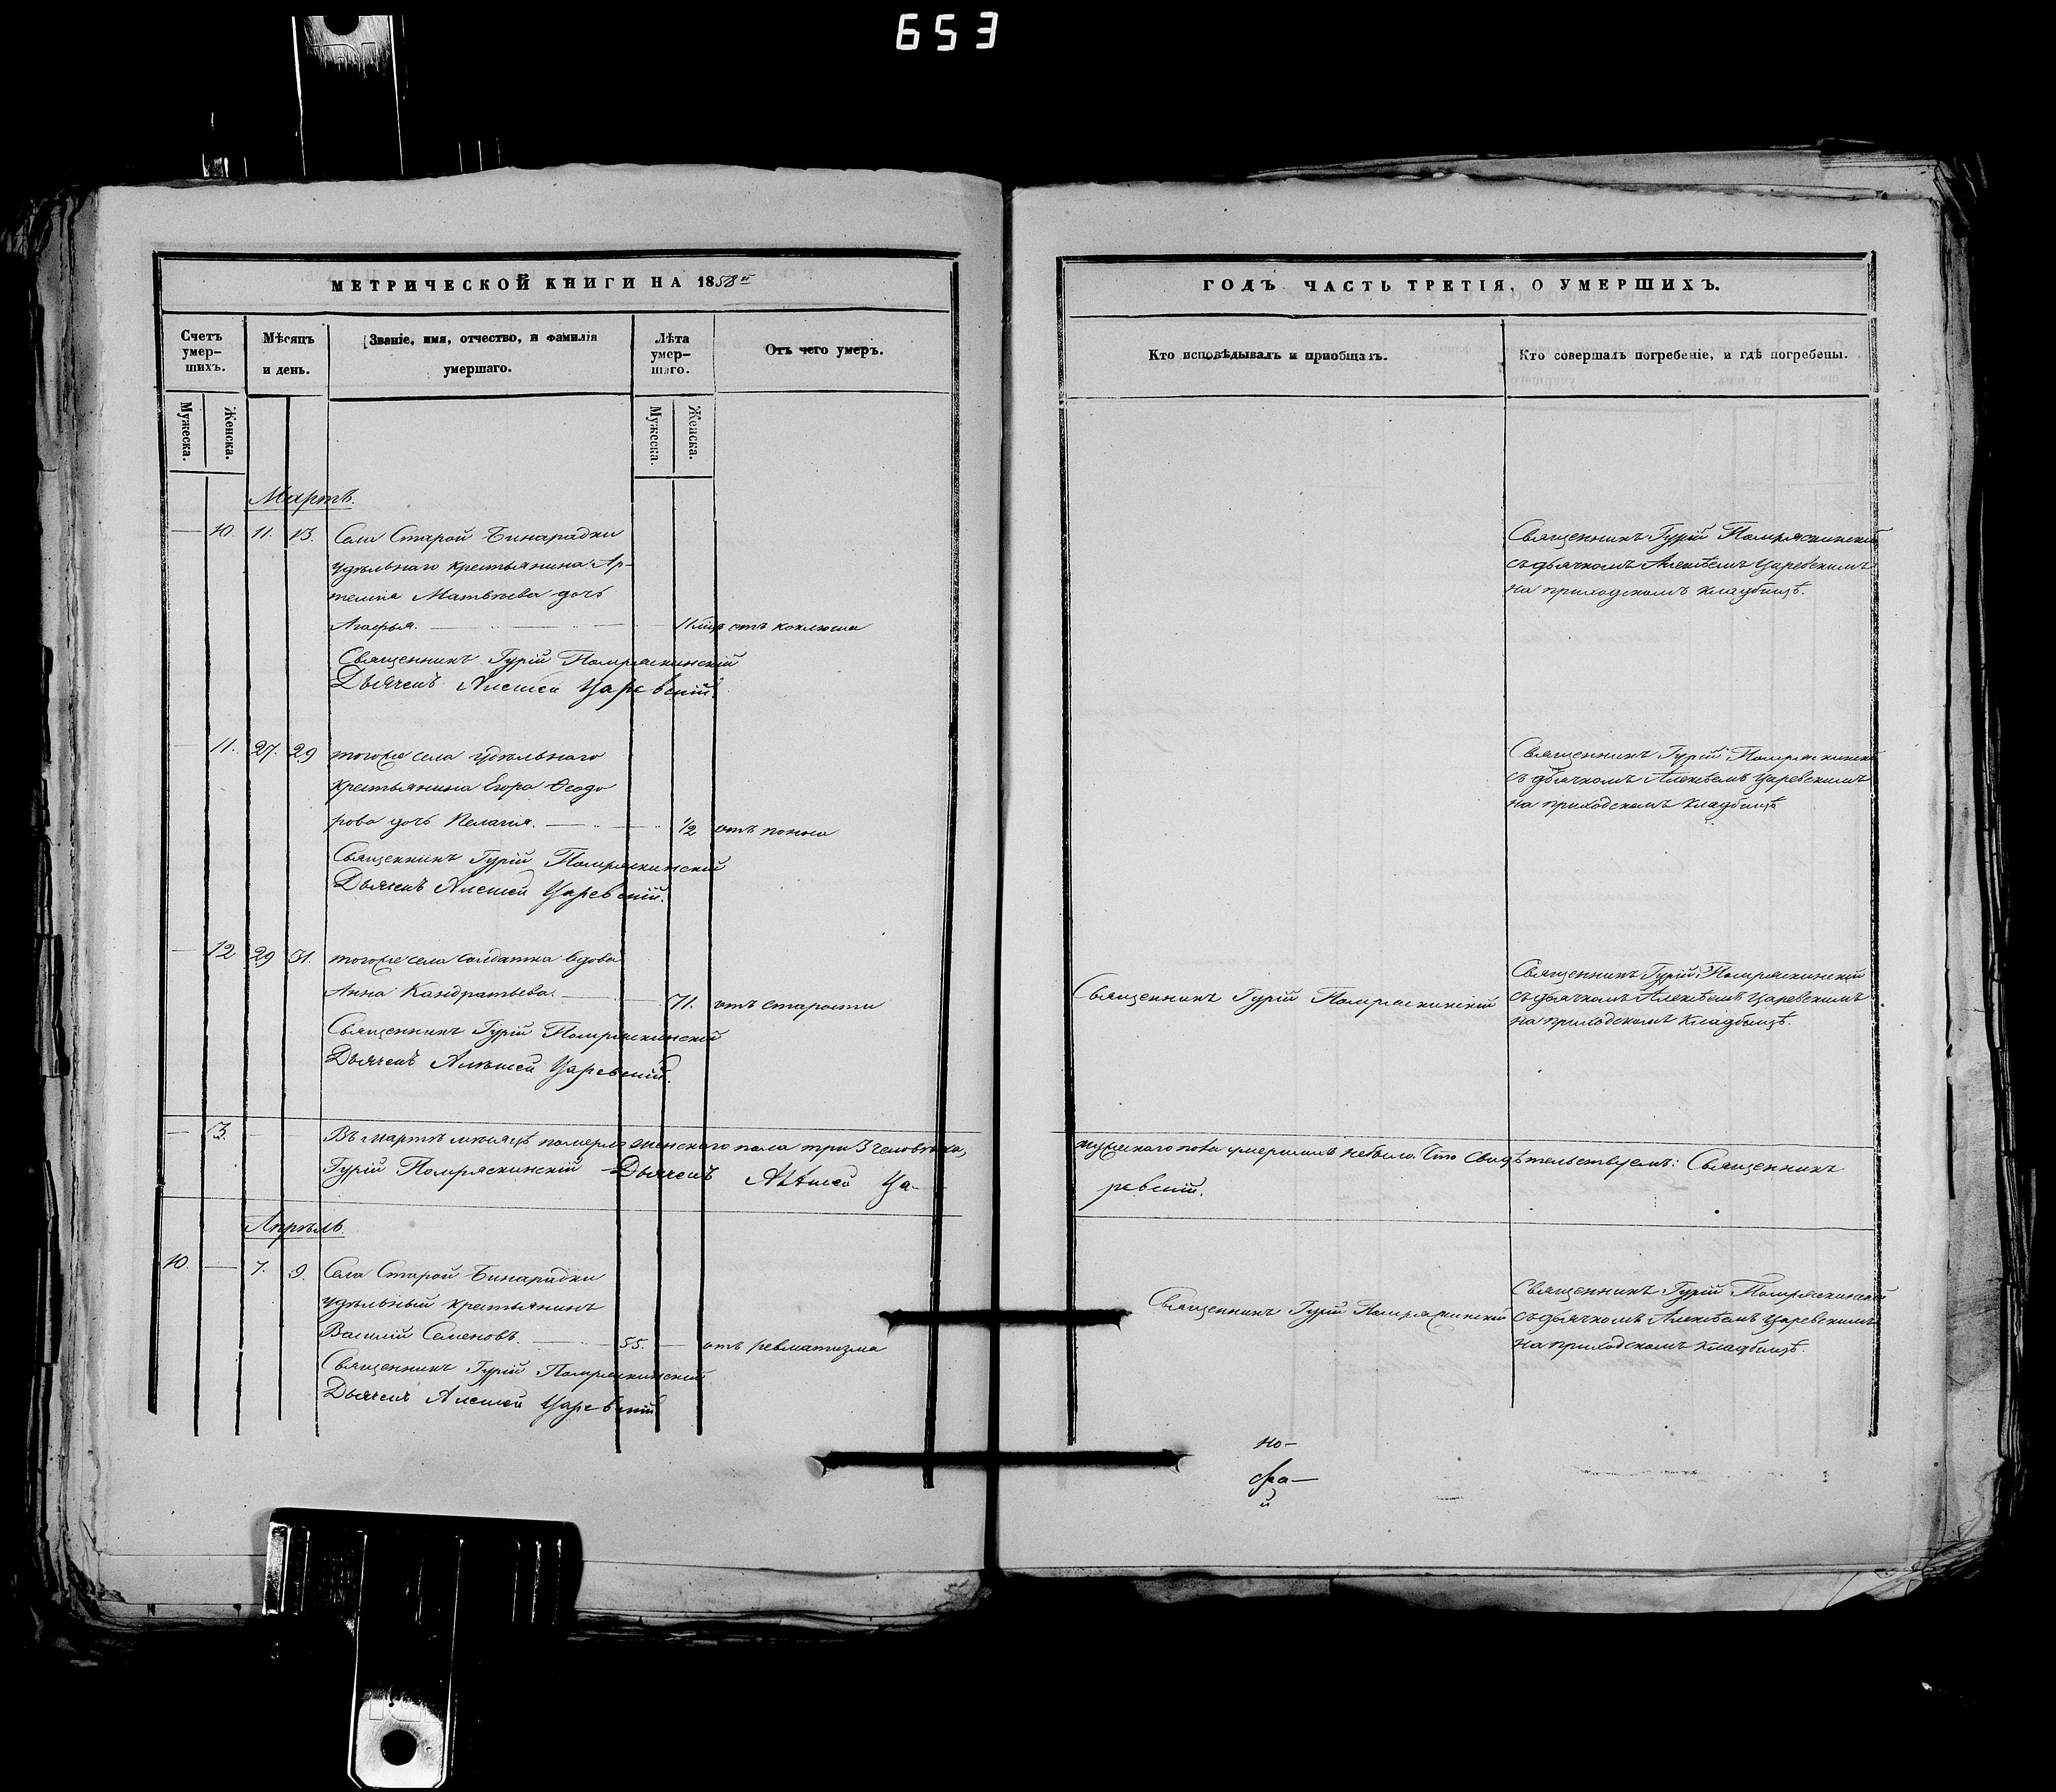 653
МЕТРИЧЕСКОЙ КНИГИ НА 1858й
Счетъ умер-шихъ.
Мѣсяцъ и день.
Званіе, имя, отчество, и фамилія умершаго.
Лѣта умер-шаго.
Отъ чего умеръ.
Мужеска.
Женска.
Мужеска.
Женска.
Мартъ.
— 10 11. 13. Села Старой Бинарадки
удѣльнаго крестьянина Ар-
темія Матвѣева дочь
Агафья. — 11 мѣс отъ коклюша
Священникъ Гурій Помряскинскій
Дьячекъ Алексей Царевскій.
— 11. 27. 29 тогоже села удѣльнаго
крестьянина Егора Ѳеодо
рова дочь Пелагія. — 1/2 отъ поноса
Священникъ Гурій Помряскинскій
Дьячекъ Алексей Царевскій.
— 12 29 31. тогоже села солдатка вдова
Анна Кандратьева. — 71. отъ старости
Священникъ Гурій Помряскинскій
Дьячекъ Алексей Царевскій.
— 3. — — Въ мартѣ мѣсяцѣ померло женскаго пола три 3 человѣка,
Гурій Помряскинскій Дьячекъ Алексей Ца-
Апрѣль.
10. — 7. 9. Села Старой Бинарадки
удѣльный крестьянинъ
Василій Семеновъ. — 55. — отъ ревматизма
Священникъ Гурій Помряскинскій
Дьячекъ Алексей Царевскій
ГОДЪ ЧАСТЬ ТРЕТІЯ, О УМЕРШИХЪ.
Кто исповѣдывалъ и приобщалъ.
Кто совершалъ погребеніе, и гдѣ погребены.
Священникъ Гурій Помряскинскій
съ дьячкомъ Алексѣемъ Царевскимъ
на приходскомъ кладбищѣ.
Священникъ Гурій Помряскинскій
съ дьячкомъ Алексѣемъ Царевскимъ
на приходскомъ кладбищѣ
Священникъ Гурій Помряскинскій
Священникъ Гурій Помряскинскій
съ дьячкомъ Алексѣемъ Царевскимъ
на приходскомъ кладбищѣ.
мужескаго пола умершихъ небыло. Что свидѣтельствуемъ: Священникъ
ревскій.
Священникъ Гурій Помряскинскій
Священникъ Гурій Помряскинскій
съ дьячкомъ Алексѣемъ Царевскимъ
на приходскомъ кладбищѣ.
но-